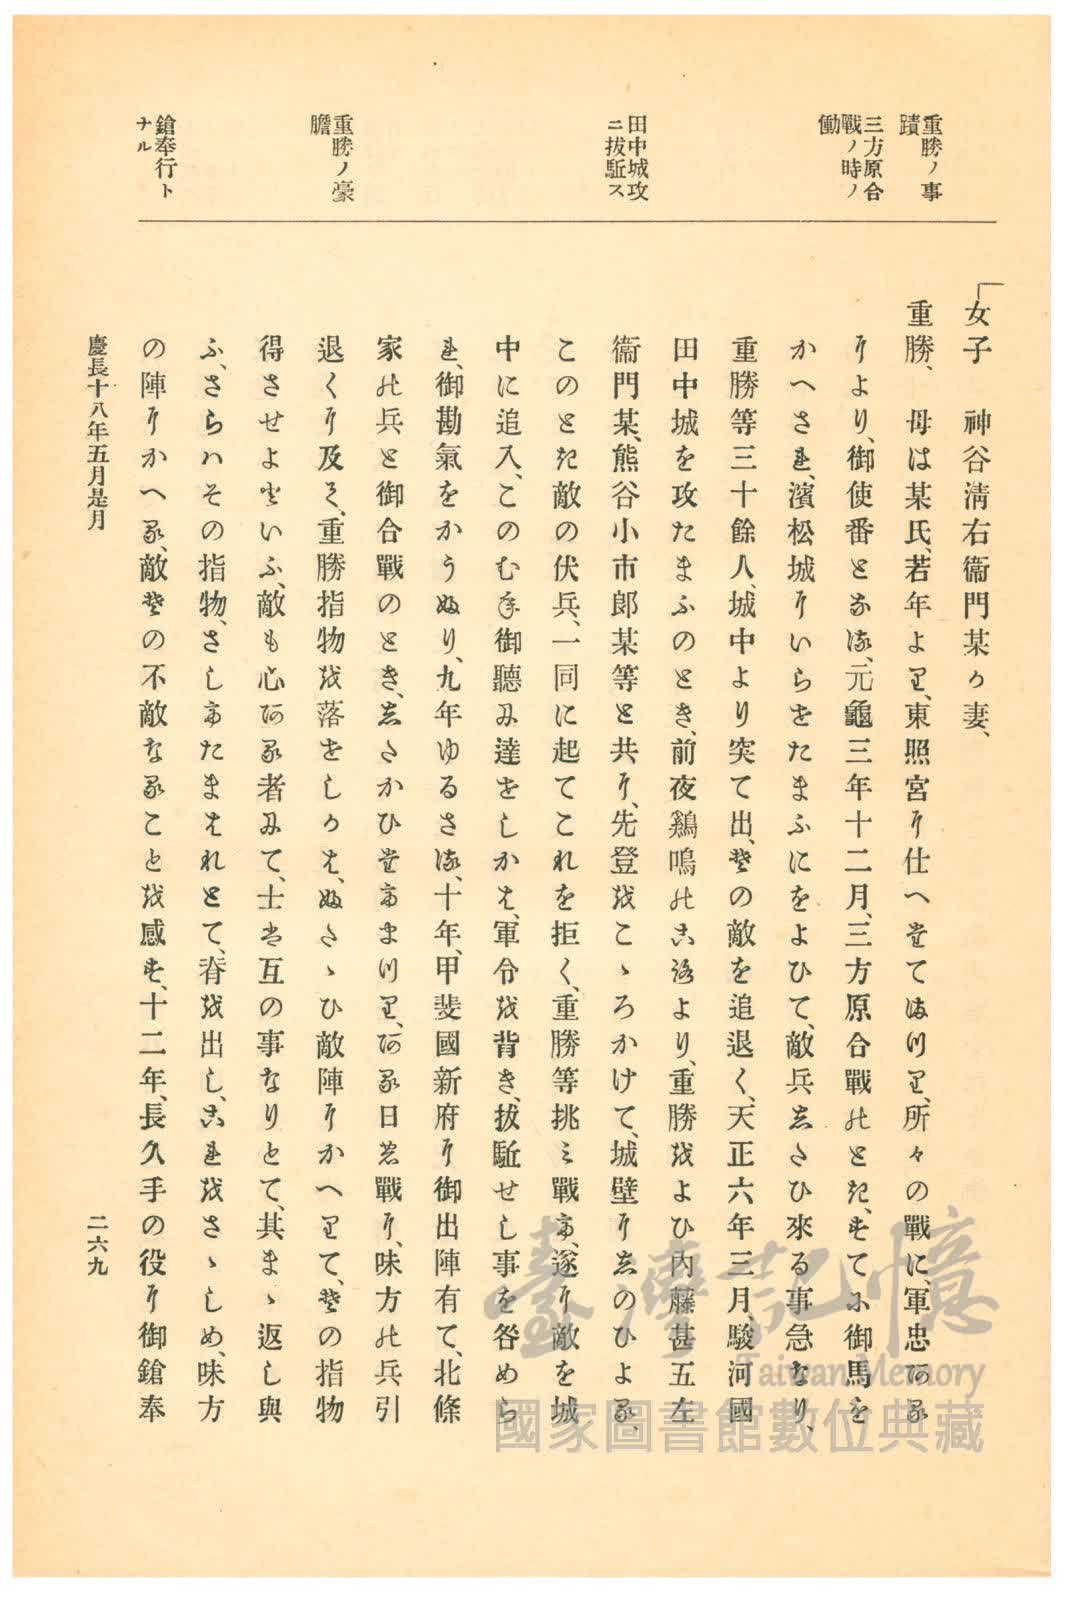 重勝ノ事
蹟
三方原合
戰ノ時ノ
働
田中城攻
ニ拔駈ス
重勝ノ豪
膽
鎗奉行ト
ナル
女子　神谷淸右衞門某か妻、
重勝、　母は某氏、若年より、東照宮に仕へたてまつり、所々の戰に、軍忠ある
によ り、御使番となる、元龜三年十二月、三方原合戰のとき、すてに御馬を
かへされ、濱松城にいらせたまふにをよひて、敵兵したひ來る事急なり、
重勝等三十餘人、城中より突て出、その敵を追退く、天正六年三月、駿河國
田中城を攻たまふのとき、前夜鷄鳴のころより、重勝をよひ內藤甚五左
衞門某、熊谷小市郞某等と共に、先登をこゝろかけて、城壁にしのひよる、
このとき敵の伏兵、一同に起てこれを拒く、重勝等挑ミ戰ふ、遂に敵を城
中に追入、このむね御聽に達をしかは、軍令を背き、拔駈せし事を咎めら
れ、御勘氣をかうぬり、九年ゆるさる、十年、甲斐國新府に御出陣有て、北條
家の兵と御合戰のとき、したかひたてまつり、ある日も戰に、味方の兵引
退くに及そ、重勝指物を落をしかは、ぬたゝひ敵陣にかへりて、その指物
得させよといふ、敵も心ある者にて、士は互の事なりとて、其まゝ返し與
ふ、さらハその指物、さしふたまはれとて、脊を出し、これをさゝしめ、味方
の陣にかへる、敵その不敵なることを感す、十二年、長久手の役に御鎗奉
慶長十八年五月是月
二六九
臺灣記憶
Taiwan Memory
國家圖書館數位典藏